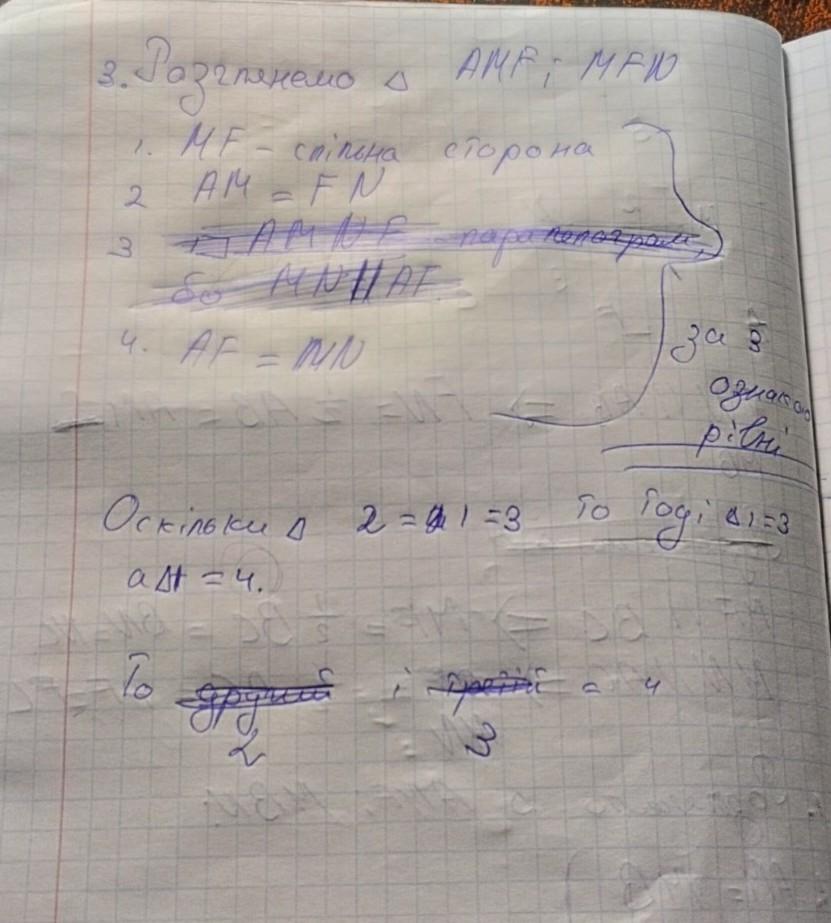 3. Розглянемо Δ AMF; MFN
1. MF - спільна сторона
2 AM = FN
3 ▱ AMNF - паралелограм,
бо MN || AF
4. AF = MN
за 3
ознакою
рівні
Оскільки Δ 2 = 1 = 3 То Тоді Δ1=3
а Δ1 = 4.
То другий і третій = 4
2 3